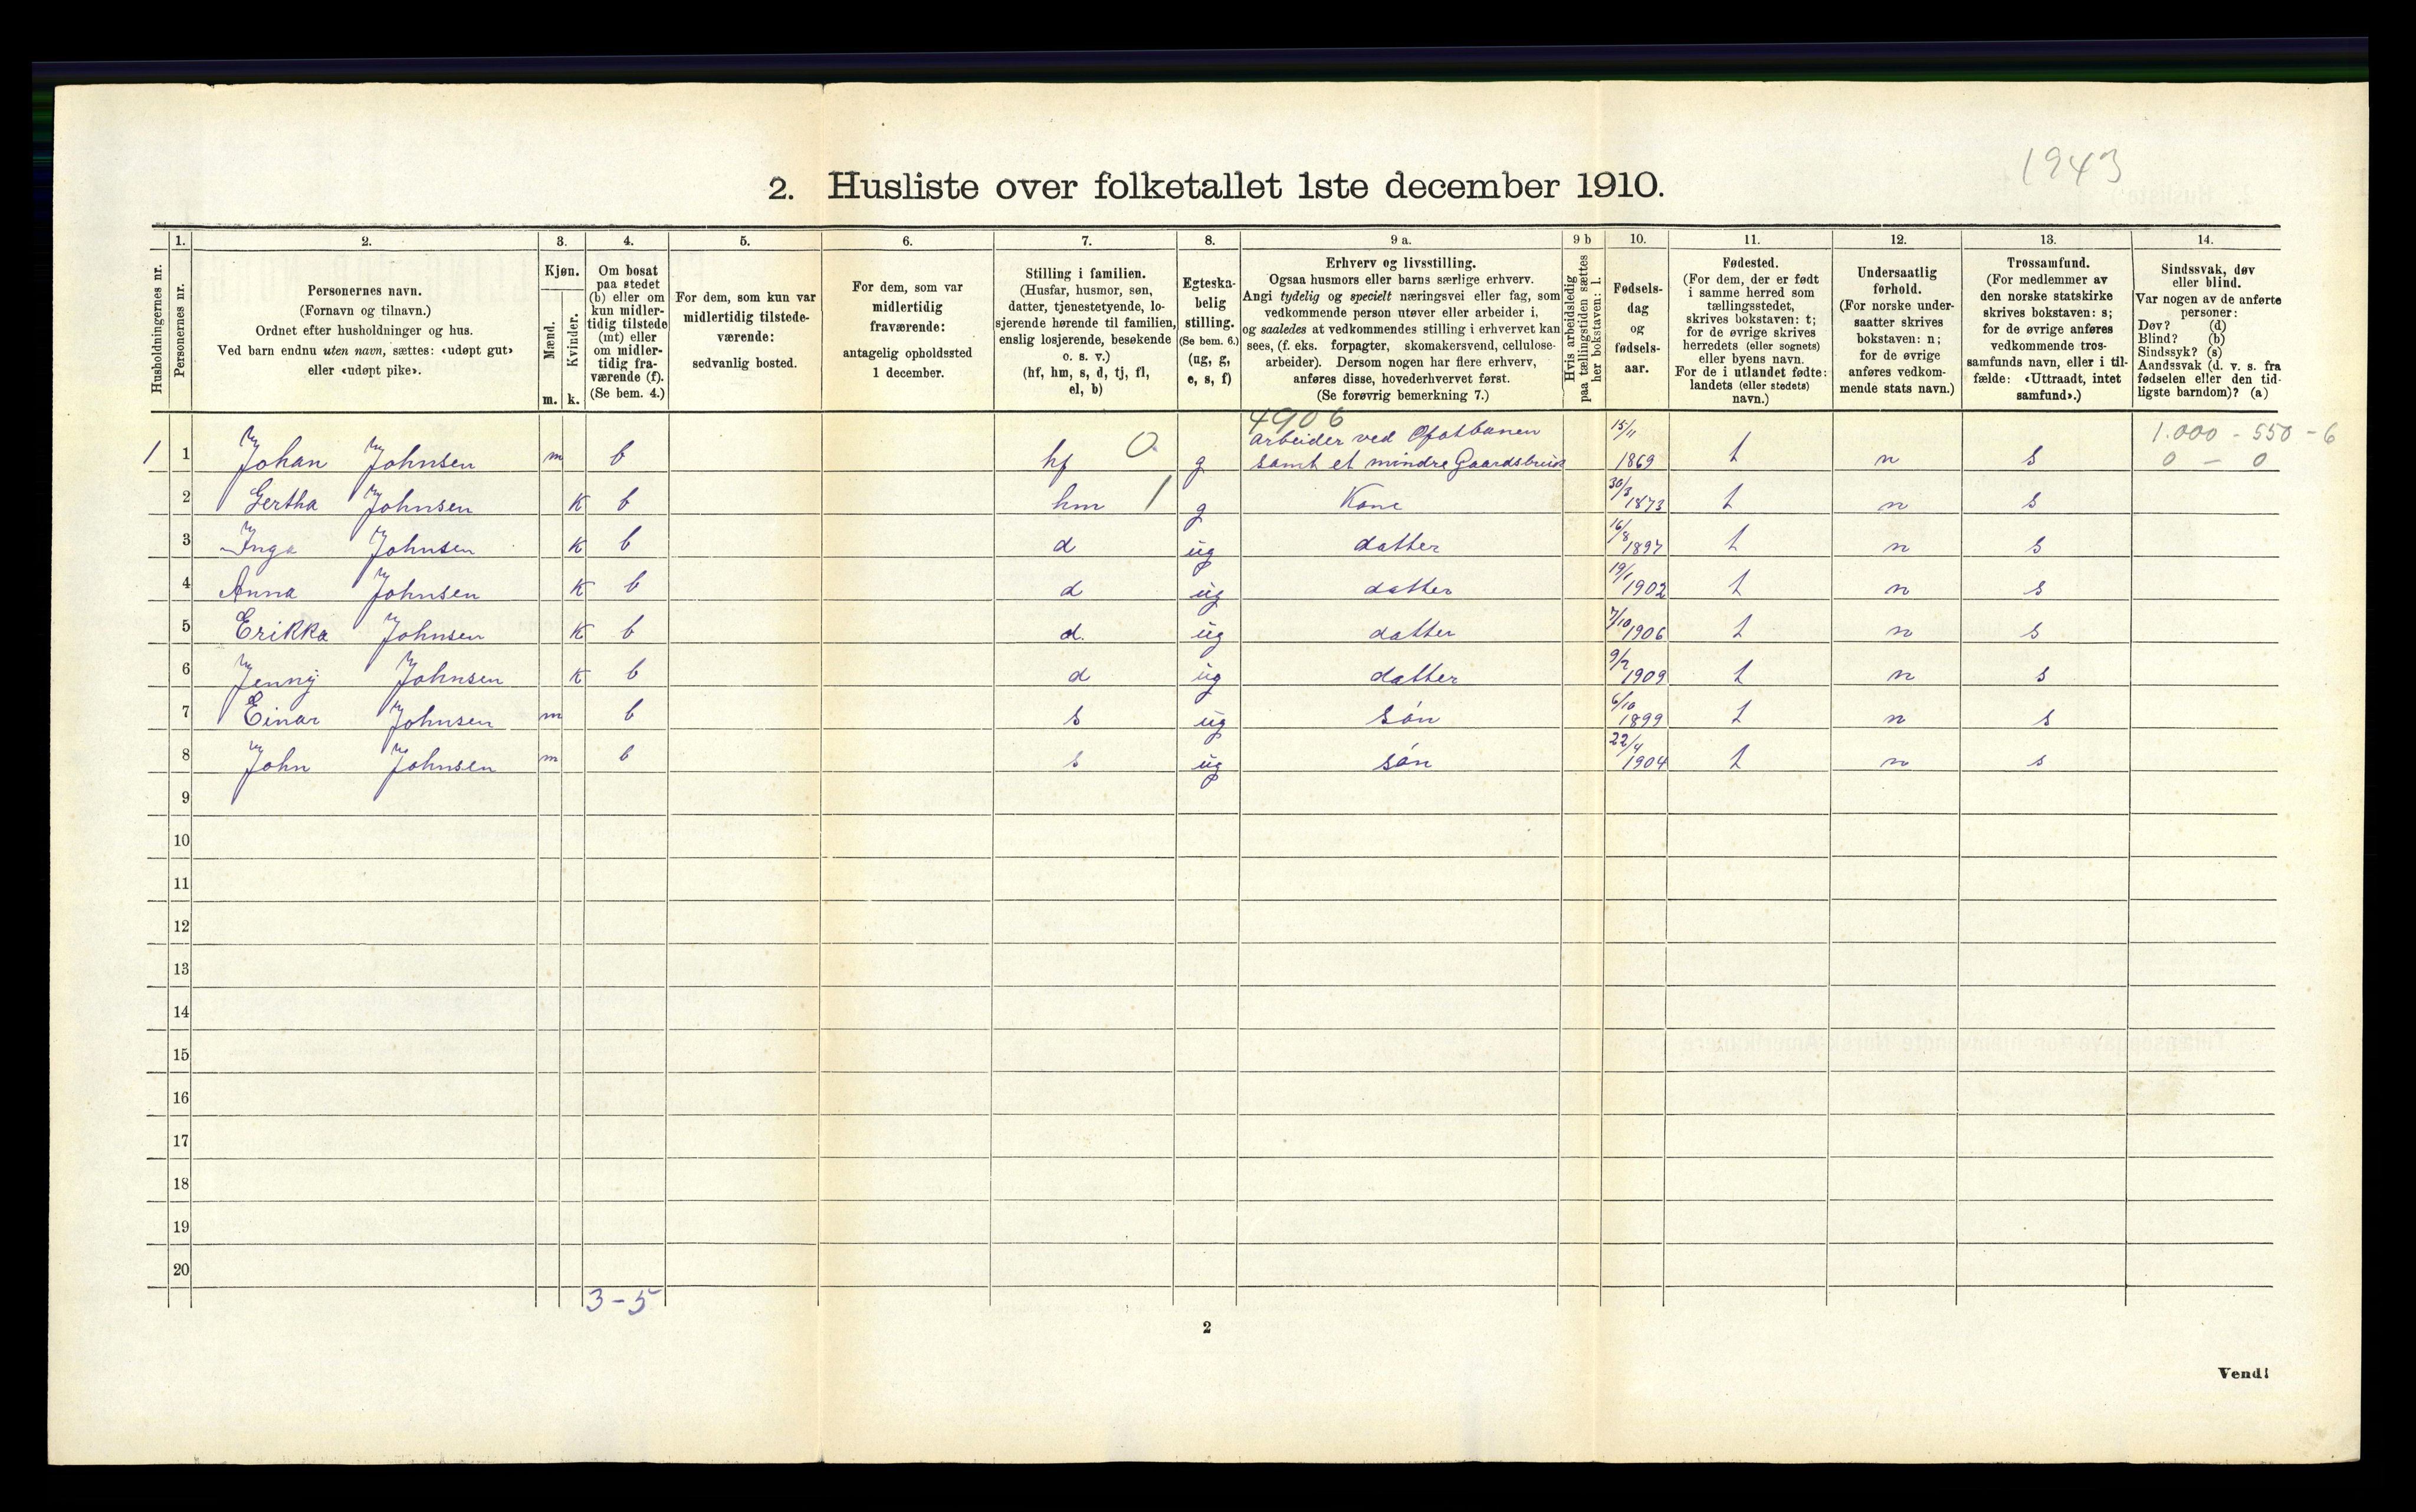 1943
2. Husliste over folketallet 1ste december 1910.
Husholdningernes nr.
1.
Personernes nr.
2.
Personernes navn.
(Fornavn og tilnavn.)
Ordnet efter husholdninger og hus.
Ved barn endnu uten navn, sættes: «udøpt gut»
eller «udøpt pike».
3.
Kjøn.
Mænd.
Kvinder.
m. k.
4.
Om bosat
paa stedet
(b) eller om
kun midler-
tidig tilstede
(mt) eller
om midler-
tidig fra-
værende (f).
(Se bem. 4.)
5.
For dem, som kun var
midlertidig tilstede-
værende:
sedvanlig bosted.
6.
For dem, som var
midlertidig
fraværende:
antagelig opholdssted
1 december.
7.
Stilling i familien.
(Husfar, husmor, søn,
datter, tjenestetyende, lo-
sjerende hørende til familien,
enslig losjerende, besøkende
o. s. v.)
(hf, hm, s, d, tj, fl,
el, b)
8.
Egteska-
belig
stilling.
(Se bem. 6.)
(ug, g,
e, s, f)
9 a.
Erhverv og livsstilling.
Ogsaa husmors eller barns særlige erhverv.
Angi tydelig og specielt næringsvei eller fag, som
vedkommende person utøver eller arbeider i,
og saaledes at vedkommendes stilling i erhvervet kan
sees, (f. eks. forpagter, skomakersvend, cellulose-
arbeider). Dersom nogen har flere erhverv,
anføres disse, hovederhvervet først.
(Se forøvrig bemerkning 7.)
9 b
Hvis arbeidsledig
paa tællingstiden sættes
her bokstaven: l.
10.
Fødsels-
dag
og
fødsels-
aar.
11.
Fødested.
(For dem, der er født
i samme herred som
tællingsstedet,
skrives bokstaven: t;
for de øvrige skrives
herredets (eller sognets)
eller byens navn.
For de i utlandet fødte:
landets (eller stedets)
navn.)
12.
Undersaatlig
forhold.
(For norske under-
saatter skrives
bokstaven: n;
for de øvrige
anføres vedkom-
mende stats navn.)
13.
Trossamfund.
(For medlemmer av
den norske statskirke
skrives bokstaven: s;
for de øvrige anføres
vedkommende tros-
samfunds navn, eller i til-
fælde: «Uttraadt, intet
samfund».)
14.
Sindssvak, døv
eller blind.
Var nogen av de anførte
personer:
Døv? (d)
Blind? (b)
Sindssyk? (s)
Aandssvak (d. v. s. fra
fødselen eller den tid-
ligste barndom)? (a)
4906
arbeider ved Ofotbanen 15/11 1.000 - 550 - 6
1 1 Johan Johnsen m b hf 0. g samt et mindre Gaardsbruk 1869 t n s 0 - 0
2 Gertha Johnsen K b hm 1 g Kone 30/3 1873 t n s
3 Inga Johnsen K b d ug datter 16/8 1897 t n s
4 Anna Johnsen K b d ug datter 19/1 1902 t n s
5 Erikka Johnsen K b d. ug datter 7/10 1906 t n s
6 Jenny Johnsen K b d ug datter 9/2 1909 t n s
7 Einar Johnsen m b s ug søn 6/10 1899 t n s
8 John Johnsen m b s ug søn 22/4 1904 t n s
9
10
11
12
13
14
15
16
17
18
19
20
3 - 5
2
Vend!